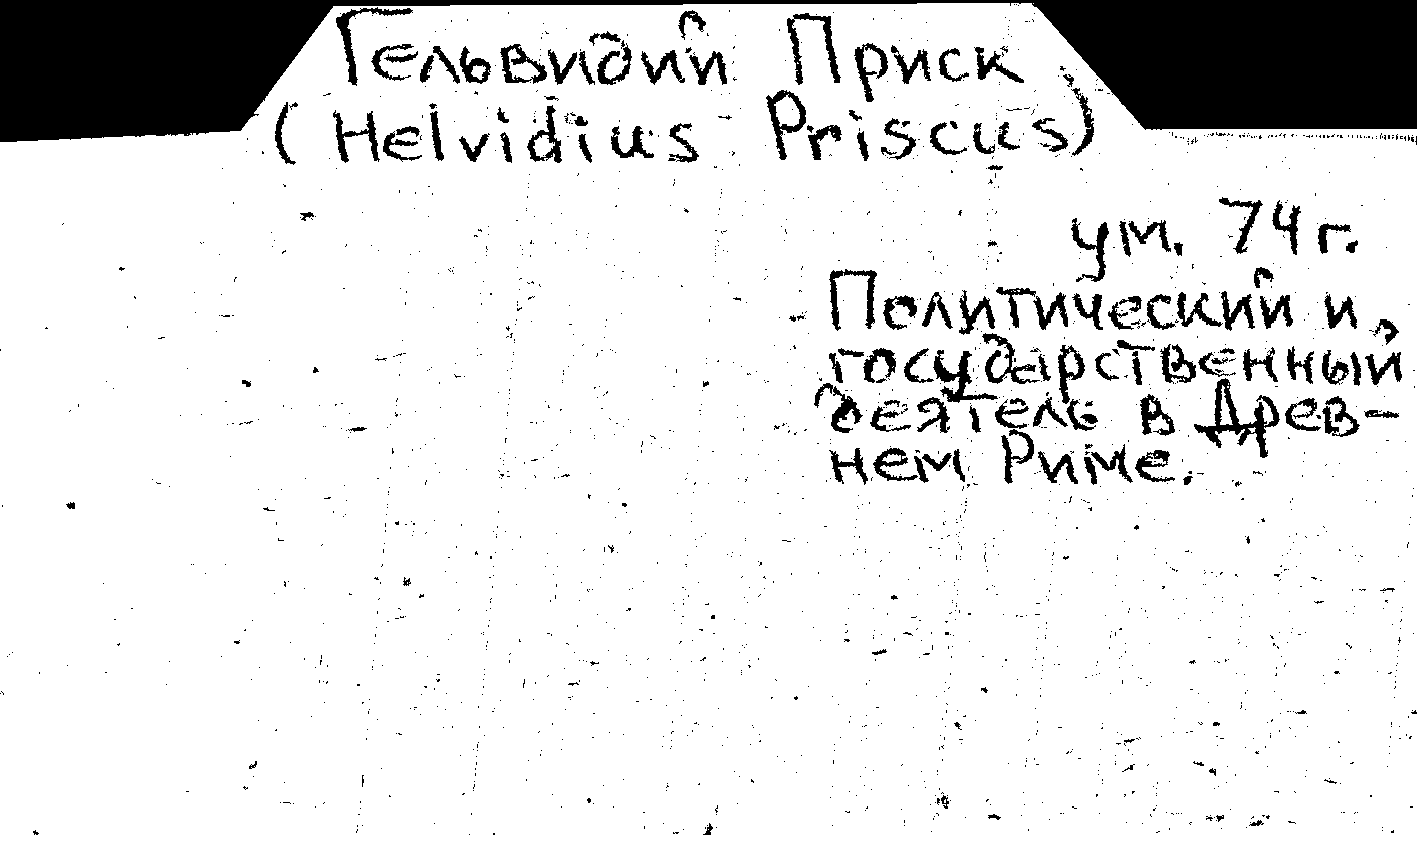 Гельвидий Приск
(Helvidius Priscus)
ум. 74 г.
Политический и
государственный
деятель в Древ-
нем Риме.